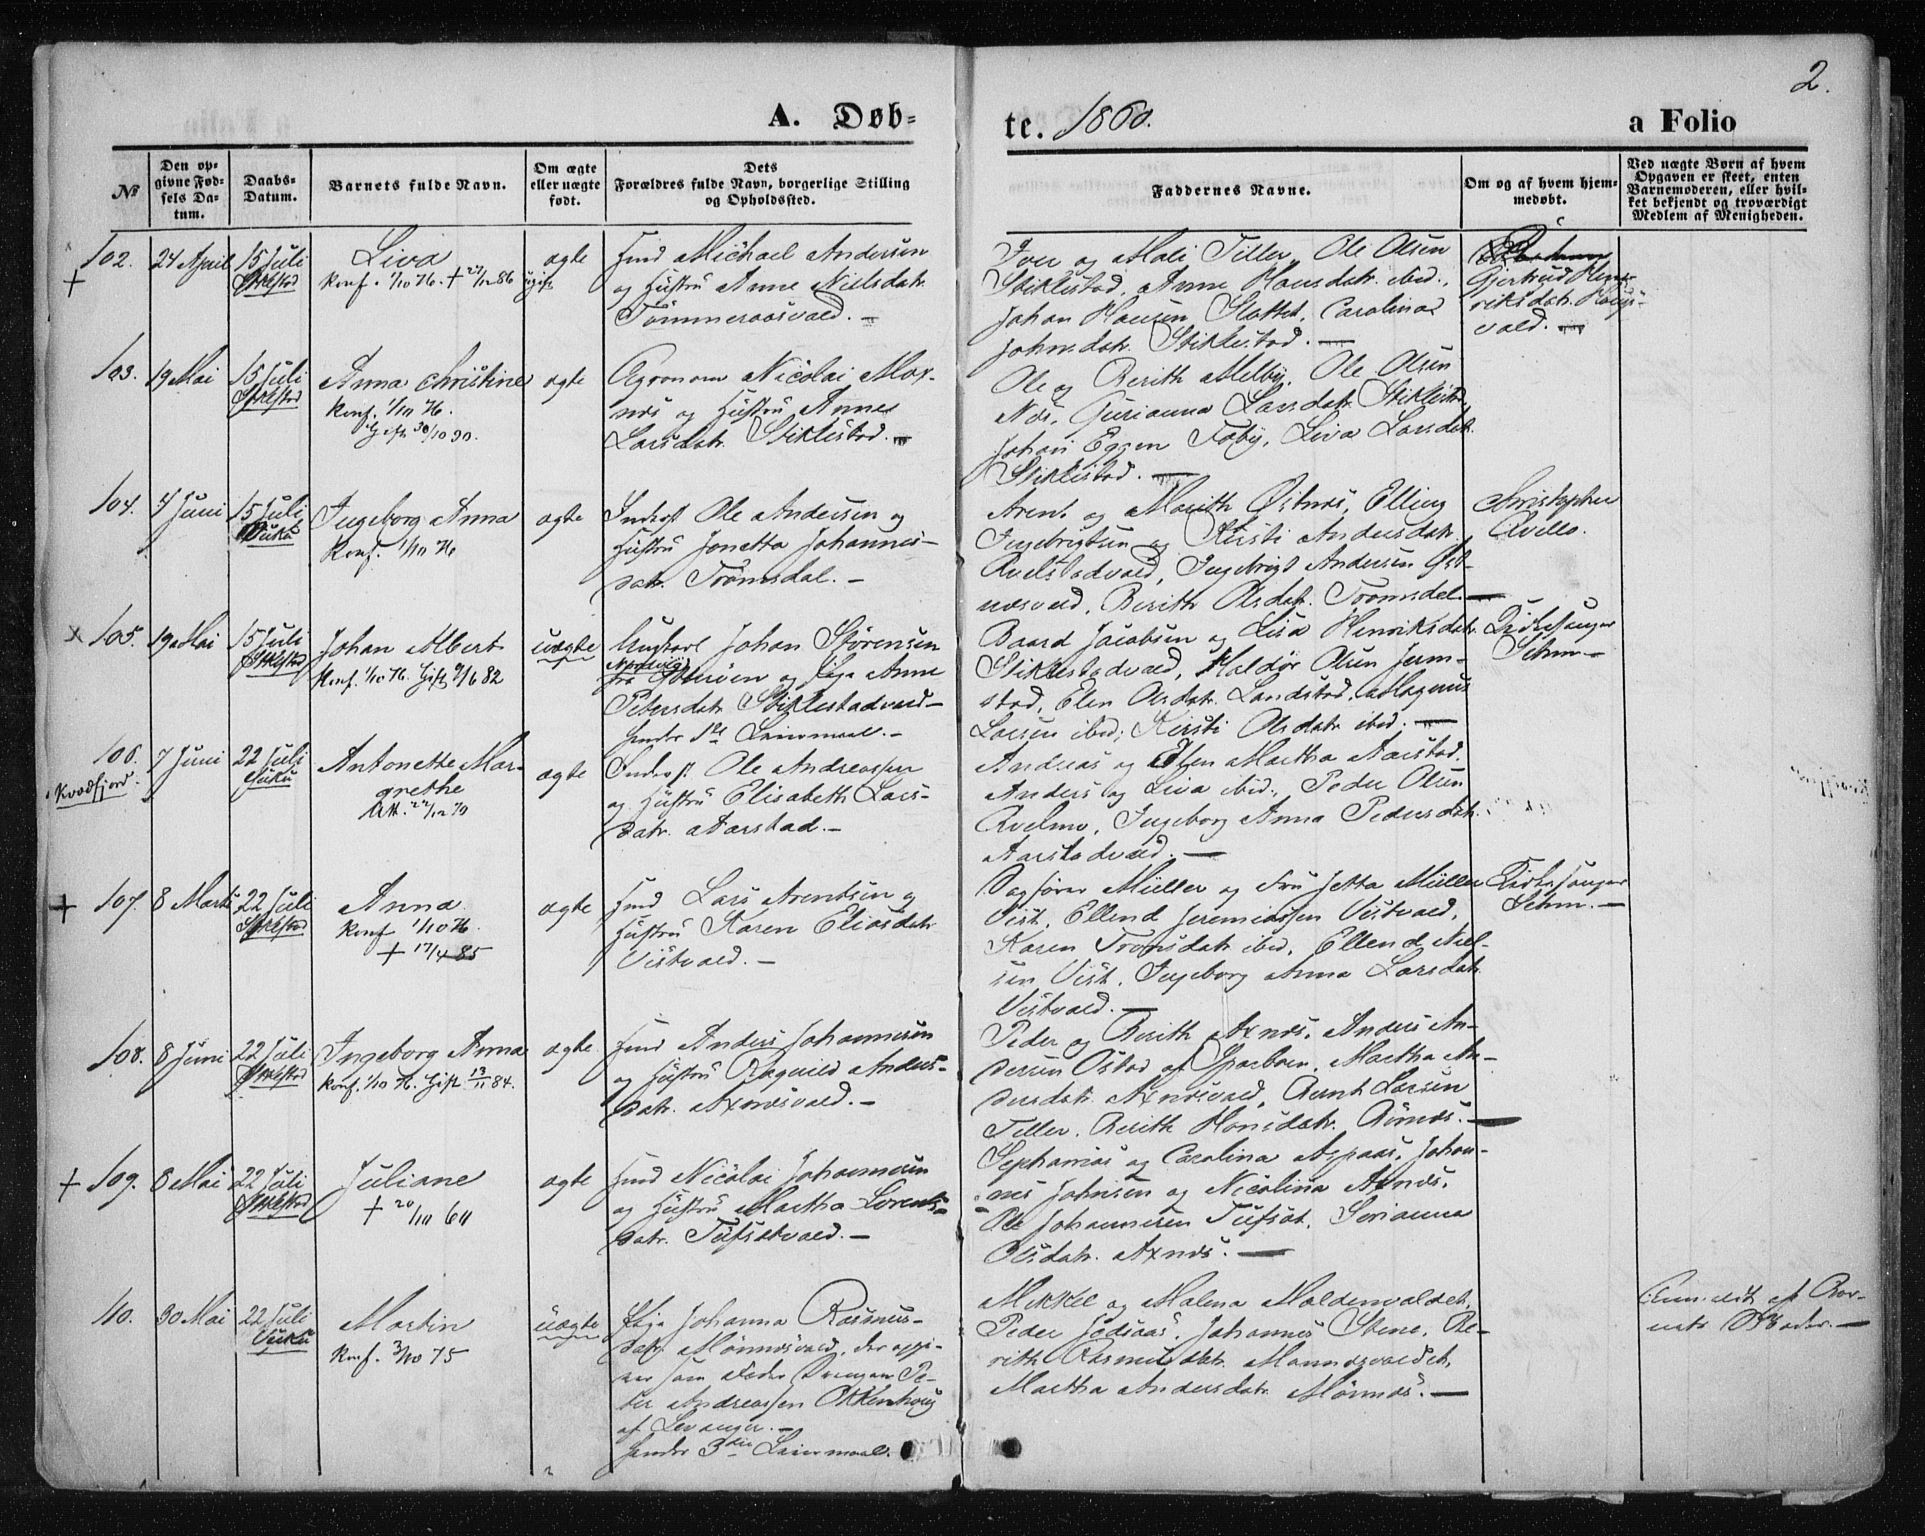 2.
A. Døb-
te. 1860.
a Folio
No
Den op-
givne Fød-
sels Da-
tum.
Daabs-
Datum.
Barnets fulde Navn.
Om ægte
eller uægte
født.
Dets
Forældres fulde Navn, borgerlige Stilling
og Opholdssted.
Faddernes Navne.
Om og af hvem hjem-
medøbt.
Ved uægte Børn af hvem
Opgaven er skeet, enten
Barnemoderen, eller hvil-
ket bekjendt og troværdigt
Medlem af Menigheden.
102. 24 April 15 Juli
Stiklestad
Liva
Konf. 1/10 76. + 27/12 86 ugift
ægte
Husmd Michael Andersen
og Hustru Anne Nielsdatr
Tømmeraasvald. —
Iver og Mali Tiller, Ole Olsen
Stiklestad, Anne Hansdatr ibid.,
Johan Hansen Slottet, Carolina
Johnsdatr Stiklestad. —
Gjertrud Hen-
riksdatr. Haugs-
vald. —
103. 19 Mai 15 Juli
Stiklestad
Anna Christine
Konf. 1/10 76.
Gift 30/10 90.
ægte
Agronom Nicolai Mox-
næs og Hustru Anne
Larsdatr. Stiklestad. —
Ole og Berith Melby, Ole Olsen
Næs, Gurianna Larsdatr. Stiklestad,
Johan Eggen Faby, Liva Larsdatr.
Stiklestad. —
104. 4 Juni 15 Juli
Vuku
Ingeborg Anna
Konf. 1/10 76
ægte
Inderst Ole Andersen og
Hustru Jonetta Johannes-
datr. Trømsdal. —
Arent og Marith Østnæs, Elling
Ingebrigtsen og Kirsti Andersdatr.
Avelstadvald, Ingebrigt Andersen Øst-
næsvald, Berith Olsdatr. Tromsdal. —
Christopher
Avello.
105. 19 Mai 15 Juli
Stiklestad
Johan Albert
Konf. 1/10 76. Gift 9/6 82
uægte
Ungkarl Johan Sørensen
fra Ytterøen og Pige Anne
Petersdatr Stiklestadvald —
hendes 1ste Leiermaal. —
Baard Jacobsen og Lisa Henriksdatr
Stiklestadvald, Haldor Olsen Jerm-
stad, Elen Olsdatr. Landstad, Magnus
Larsen ibid; Kirsti Olsdatr ibid. —
Kirkesanger
Sehm —
106.
Kvædfjord.
7 Juni 22 Juli
Vuku
Antonette Mar-
grethe
Att. 22/12 70
ægte
Inderst Ole Andreassen
og Hustru Elisabeth Lars-
datr. Aarstad. —
Andreas og Elen Martha Aarstad,
Anders og Liva ibid., Peder Olsen
Avelmo, Ingeborg Anna Pedersdatr.
Aarstadvald. —
107. 8 Marts 22 Juli
Stiklestad
Anna
Konf 1/10 76.
+ 17/4 85
ægte
Husmd Lars Arentsen og
Hustru Karen Eliasdatr
Vistvald. —
Sagfører Müller og Fru Jetta Müller
Vist, Ellend Jeremiassen Vistvald,
Karen Tronsdatr ibid, Ellend Niel-
sen Vist, Ingeborg Anna Larsdatr.
Vistvald. —
Kirkesanger
Sehm. —
108. 8 Juni 22 Juli
Stiklestad
Ingeborg Anna
Konf. 1/10 76. Gift 13/11 84.
ægte
Husmd Anders Johannesen
og Hustru Ragnild Anders-
datr. Axnæsvald. —
Peder og Berith Axnæs, Anders An-
dersen Østad af Sparboen, Martha An-
dersdatr Axnæsvald, Bernt Larsen
Tiller, Berith Hansdatr. Rømæs. —
109. 8 Mai 22 Juli
Stiklestad
Juliane
+ 20/10 60
ægte
Husmd Nicolai Johannesen
og Hustru Martha Lorents-
datr. Tufsetvald. —
Sephanias og Carolina Aspaas, Johan-
nes Johnsen og Nicolina Axnæs,
Ole Johannesen Tufsæt, Serianna
Olsdatr. Axnæs. —
110. 30 Mai 22 Juli
Vuku
Martin
Konf. 3/10 75
uægte
Pige Johanna Rasmus-
datr. Mønnæsvald, der opgi-
ver som Fader Drengen Pe-
ter Andreassen Okkenhoug
af Levanger. —
hendes 3die Leiermaal.
Mikkel og Malena Moldenvaldet,
Peder Jødsaas, Johannes Stene, Be-
rith Rasmusdatr. Mønnæsvaldet,
Martha Andersdatr Mønnæs. —
Anmeldt af Bar-
nets Moder. —